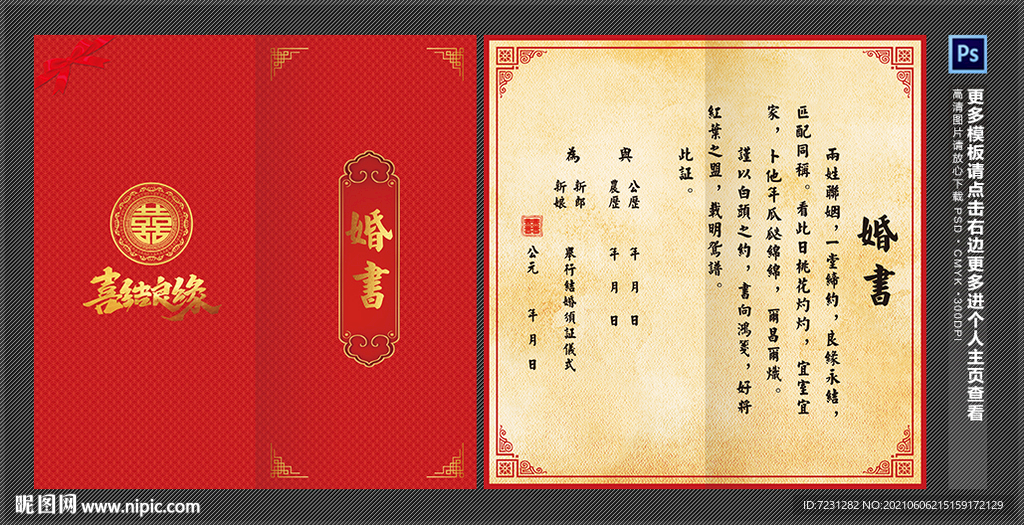 囍
喜结良缘
婚書
婚書
兩姓聯姻，一堂締約，良緣永結，
匹配同稱。看此日桃花灼灼，宜室宜
家，卜他年瓜瓞綿綿，爾昌爾熾。
謹以白頭之約，書向鴻箋，好將
紅葉之盟，載明鴛譜。
此証。
與
公歷 年 月 日
農歷 年 月 日
為
新郎
新娘
舉行結婚頒証儀式
公元 年 月 日
囍
Ps
更多模板请点击右边更多进个人主页查看
高清图片请放心下载 PSD·CMYK·300DPI
昵图网 www.nipic.com
ID:7231282 NO:20210606215159172129